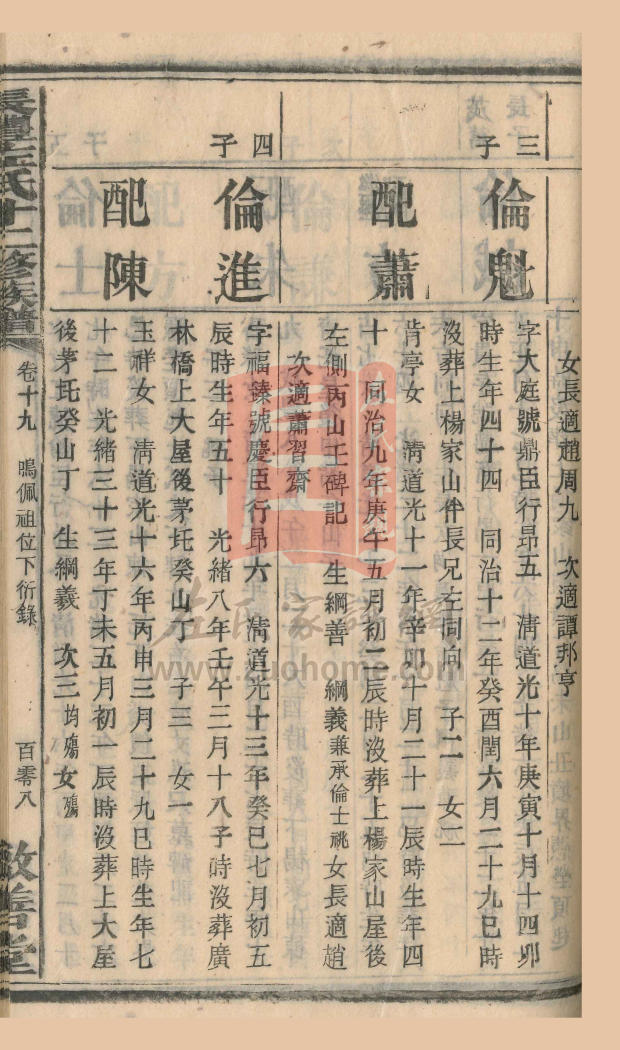 女長適趙周九　次適譚邦亨
三子
倫魁
字大庭號鼎臣行昂五　清道光十年庚寅十月十四卯
時生年四十四　同治十二年癸酉閏六月二十九巳時
沒葬上楊家山伴長兄左同向　子二　女二
配蕭
肯亭女　清道光十一年辛卯十月二十一辰時生年四
十　同治九年庚午五月初二辰時沒葬上楊家山屋後
左側丙山壬碑記　生綱善　綱義兼承倫士祧女長適趙
次適蕭習齋
四子
倫進
字福臻號慶臣行昂六　清道光十三年癸巳七月初五
辰時生年五十　光緒八年壬午三月十八子時沒葬廣
林橋上大屋後茅圫癸山丁　子三　女一
配陳
玉祥女　清道光十六年丙申三月二十九巳時生年七
十二　光緒三十三年丁未五月初一辰時沒葬上大屋
後茅圫癸山丁　生綱義　次三均殤女殤
左氏十二修族譜
卷十九　鳴佩祖位下衍錄　百零八
敦善堂
左氏家譜網
www.zuohome.com